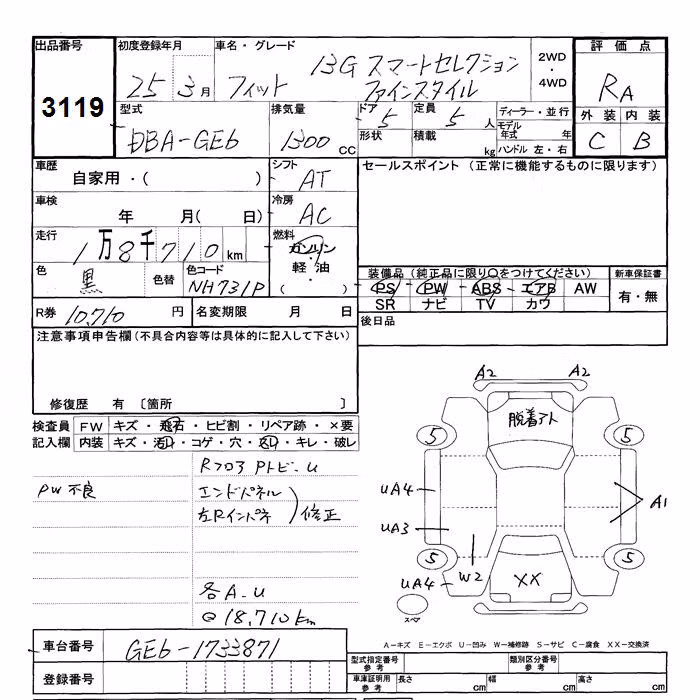 出品番号 初度登録年月 車名・グレード 2WD・4WD 評価点
3119 25 3月 フィット 13G スマートセレクション
ファインスタイル
RA
型式 排気量 ドア 定員 ディーラー・並行 外装 内装
DBA-GE6 1300 cc 5 5人 モデル年式 年 C B
形状 積載 kg ハンドル 左・右
車歴 シフト セールスポイント (正常に機能するものに限ります)
自家用・( ) AT
車検 冷房
年 月( 日) AC
走行 燃料
1万8千710km ガソリン・軽油 ( )
色 色替 色コード 装備品 (純正品に限り○をつけてください) 新車保証書
黒 NH731P PS PW ABS エアB AW 有・無
SR ナビ TV カワ
R券 10,710円 名変期限 月 日 後日品
注意事項申告欄 (不具合内容等は具体的に記入して下さい)
修復歴 有 〔箇所 〕
検査員 FW キズ・飛石・ヒビ割・リペア跡・×要
記入欄 内装 キズ・汚れ・コゲ・穴・スレ・キレ・破レ
PW不良
Rフロアトビ-U
エンドパネル
左Rインパネ
修正
各A-U
@18,710km
A2 A2
脱着アト
5 5
UA4 A1
UA3
5 5
UA4 W2 XX
スペア
A-キズ E-エクボ U-凹み W-補修跡 S-サビ C-腐食 XX-交換済
車台番号 GE6-1733871
型式指定番号 参考 類別区分番号 参考
登録番号 車庫証明用 参考 長さ cm 幅 cm 高さ cm